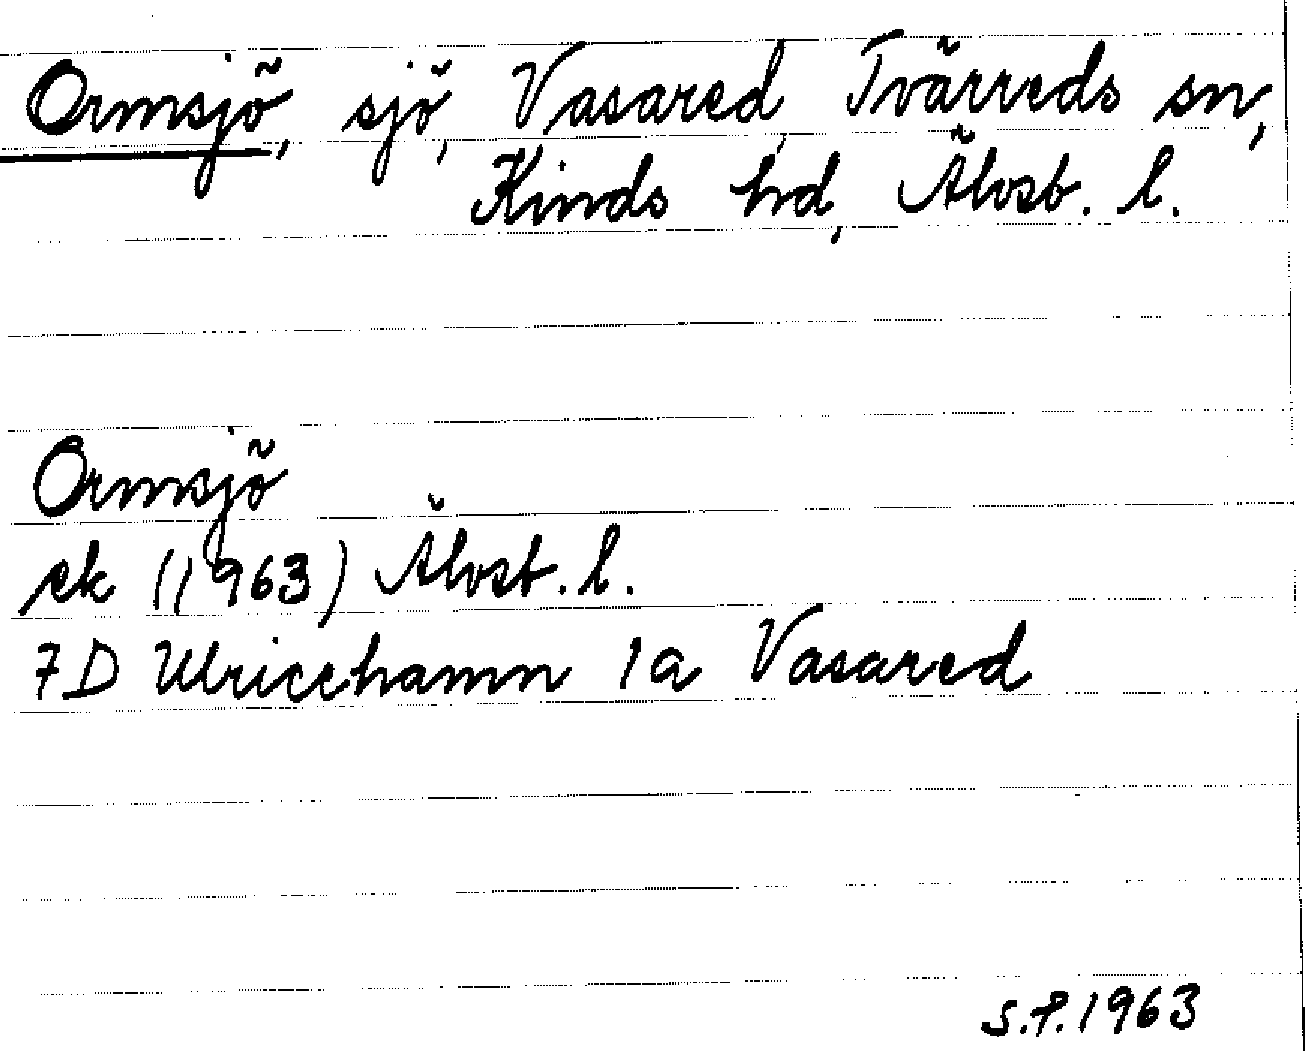 Ormsjö, sjö, Vasared, Tvärreds sn,
Kinds hd, Älvsb. l.
Ormsjö
ek (1963) Älvsb. l.
7D Ulricehamn 1a Vasared
S.F. 1963